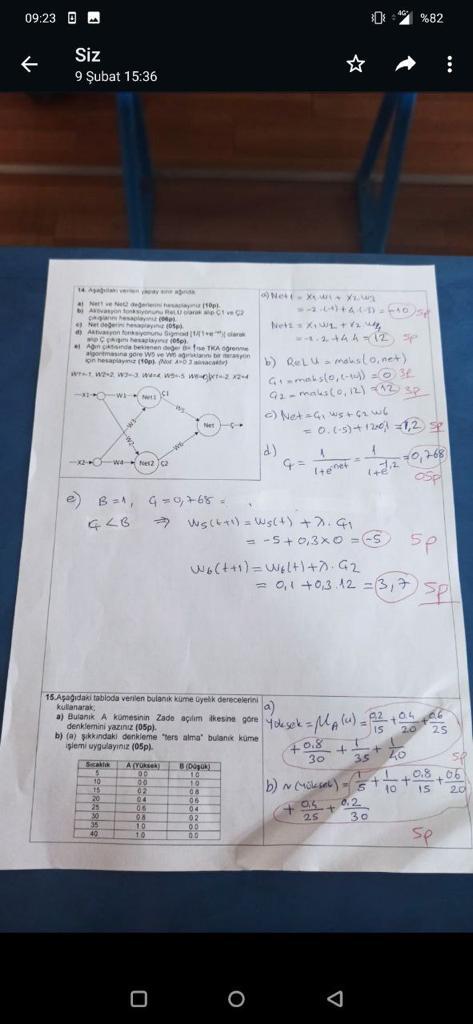 09:23
4G
%82
Siz
9 Şubat 15:36
14. Aşağıdaki verilen yapay sinir ağında
a) Net1 ve Net2 değerlerini hesaplayınız (10p).
b) Aktivasyon fonksiyonunu ReLU olarak alıp Ç1 ve Ç2
çıkışlarını hesaplayınız (06p).
c) Net değerini hesaplayınız (05p).
d) Aktivasyon fonksiyonunu Sigmoid [1/(1+e⁻ⁿᵉᵗ)] olarak
alıp Ç çıkışını hesaplayınız (05p).
e) Ağın çıktısında beklenen değer B=1 ise TKA öğrenme
algoritmasına göre W5 ve W6 ağırlıklarını bir iterasyon
için hesaplayınız (10p). (Not: λ=0.3 alınacaktır)
W1=-1, W2=2, W3=-3, W4=4, W5=-5, X1=-2, X2=4
X1
W1
Net1
Ç1
W5
W3
W2
Net
Ç
X2
W4
Net2
Ç2
W6
a) Net1 = X1.W1 + X2.W3
= -2.(-1)+4.(-3) = -10 5p
Net2 = X1.W2 + X2.W4
= -2.2+4.4 = 12 5p
b) ReLU = maks(0,net)
Ç1 = maks(0,-10) = 0 3p
Ç2 = maks(0,12) = 12 3p
c) Net = Ç1 W5 + Ç2 W6
= 0.(-5)+12.0,1 = 1,2 5p
d) Ç = 1/(1+e^-net) = 1/(1+e^-1,2) = 0,768
05p
e) B=1, Ç=0,768 =
Ç<B ⇒ W5(t+1) = W5(t) + λ.Ç1
= -5 + 0,3x0 = -5 5p
W6(t+1) = W6(t) + λ.Ç2
= 0,1 + 0,3.12 = 3,7 5p
15.Aşağıdaki tabloda verilen bulanık küme üyelik derecelerini
kullanarak;
a) Bulanık A kümesinin Zade açılım ilkesine göre
denklemini yazınız (05p).
b) (a) şıkkındaki denkleme "ters alma" bulanık küme
işlemi uygulayınız (05p).
Sıcaklık A (Yüksek) B (Düşük)
5 0.0 1.0
10 0.0 1.0
15 0.2 0.8
20 0.4 0.6
25 0.6 0.4
30 0.8 0.2
35 1.0 0.0
40 1.0 0.0
a)
Yüksek = μA(u) = 0.2/15 + 0.4/20 + 0.6/25
+ 0.8/30 + 1/35 + 1/40 5p
b) ~(Yüksek) = 1/5 + 1/10 + 0.8/15 + 0.6/20
+ 0.4/25 + 0.2/30
5p